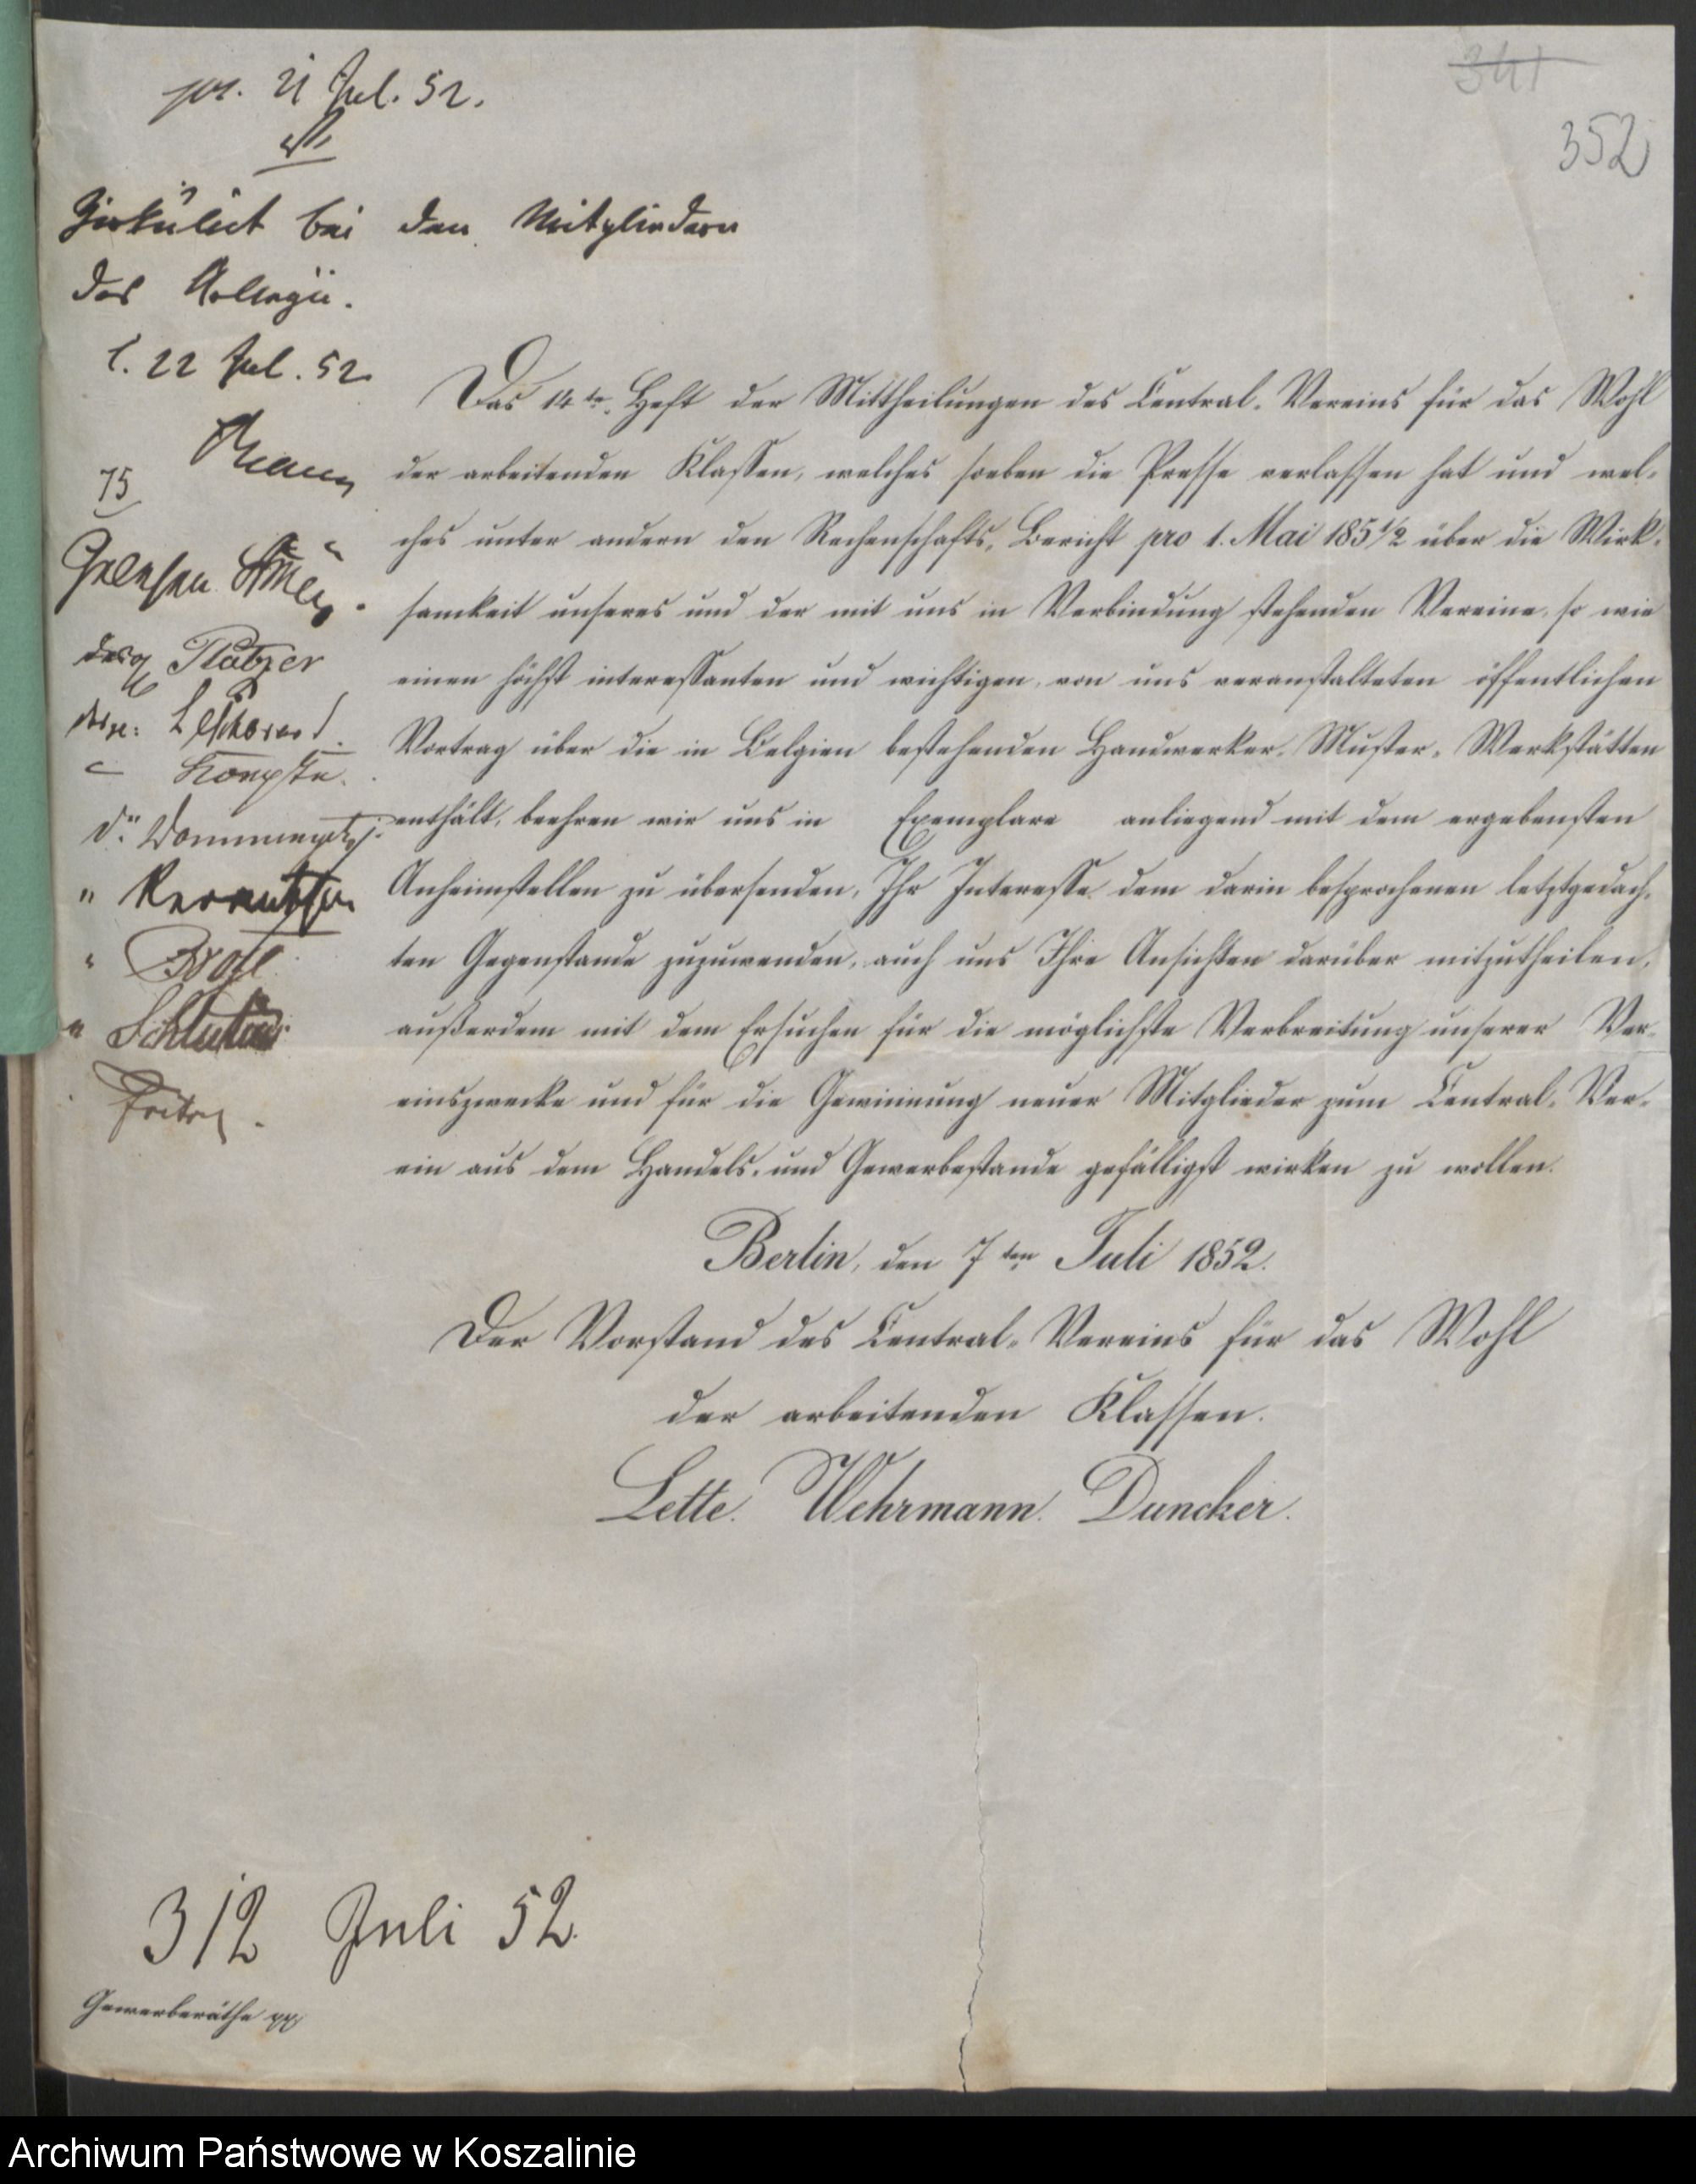 341
352
pr. 21 Jul. 52.
Zirkulirt bei den Mitgliedern
des Collegii.
C. 22 Jul. 52
75
Gelesen
desgl. Platzer
Das 14te Heft der Mittheilungen des Central-Vereins für das Wohl
der arbeitenden Klassen, welches soeben die Presse verlassen hat und wel-
ches unter andern den Rechenschafts-Bericht pro 1. Mai 185 1/2 über die Wirk-
samkeit unseres und der mit uns in Verbindung stehenden Vereine, so wie
einen höchst interessanten und wichtigen, von uns veranstalteten öffentlichen
Vortrag über die in Belgien bestehenden Handwerker-Muster-Werkstätten
enthält, beehren wir uns in Exemplare anliegend mit dem ergebensten
Anheimstellen zu übersenden, Ihr Interesse dem darin besprochenen letztgedach-
ten Gegenstande zuzuwenden, auch uns Ihre Ansichten darüber mitzutheilen,
außerdem mit dem Ersuchen für die möglichste Verbreitung unserer Ver-
einszwecke und für die Gewinnung neuer Mitglieder zum Central-Ver-
ein aus dem Handels- und Gewerbestande gefälligst wirken zu wollen.
Berlin, den 7ten Juli 1852.
Der Vorstand des Central-Vereins für das Wohl
der arbeitenden Klassen.
Lette. Wehrmann. Duncker.
312 Juli 52.
Gewerberäthe pp
Archiwum Państwowe w Koszalinie